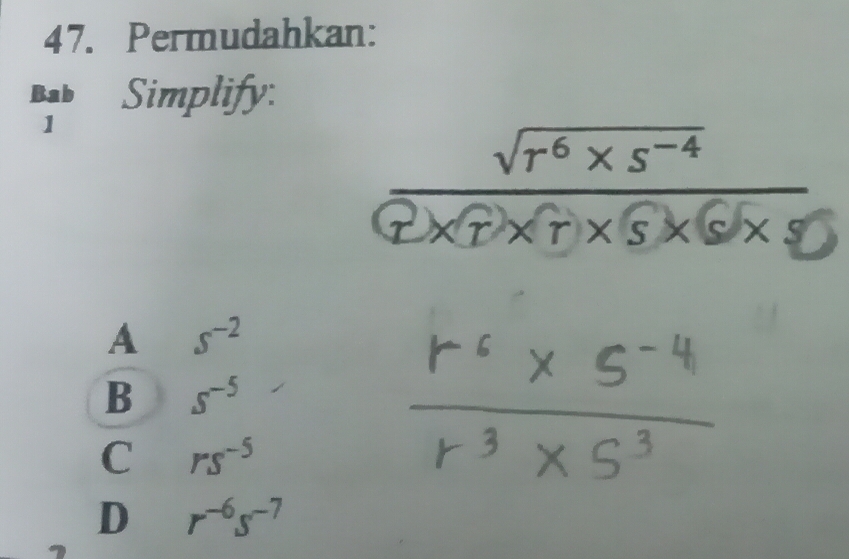 47. Permudahkan:
Bab 1 Simplify:
√(r⁶ × s⁻⁴)
r × r × r × s × s × s
A s⁻²
B s⁻⁵
C rs⁻⁵
D r⁻⁶s⁻⁷
r⁶ × s⁻⁴
r³ × s³